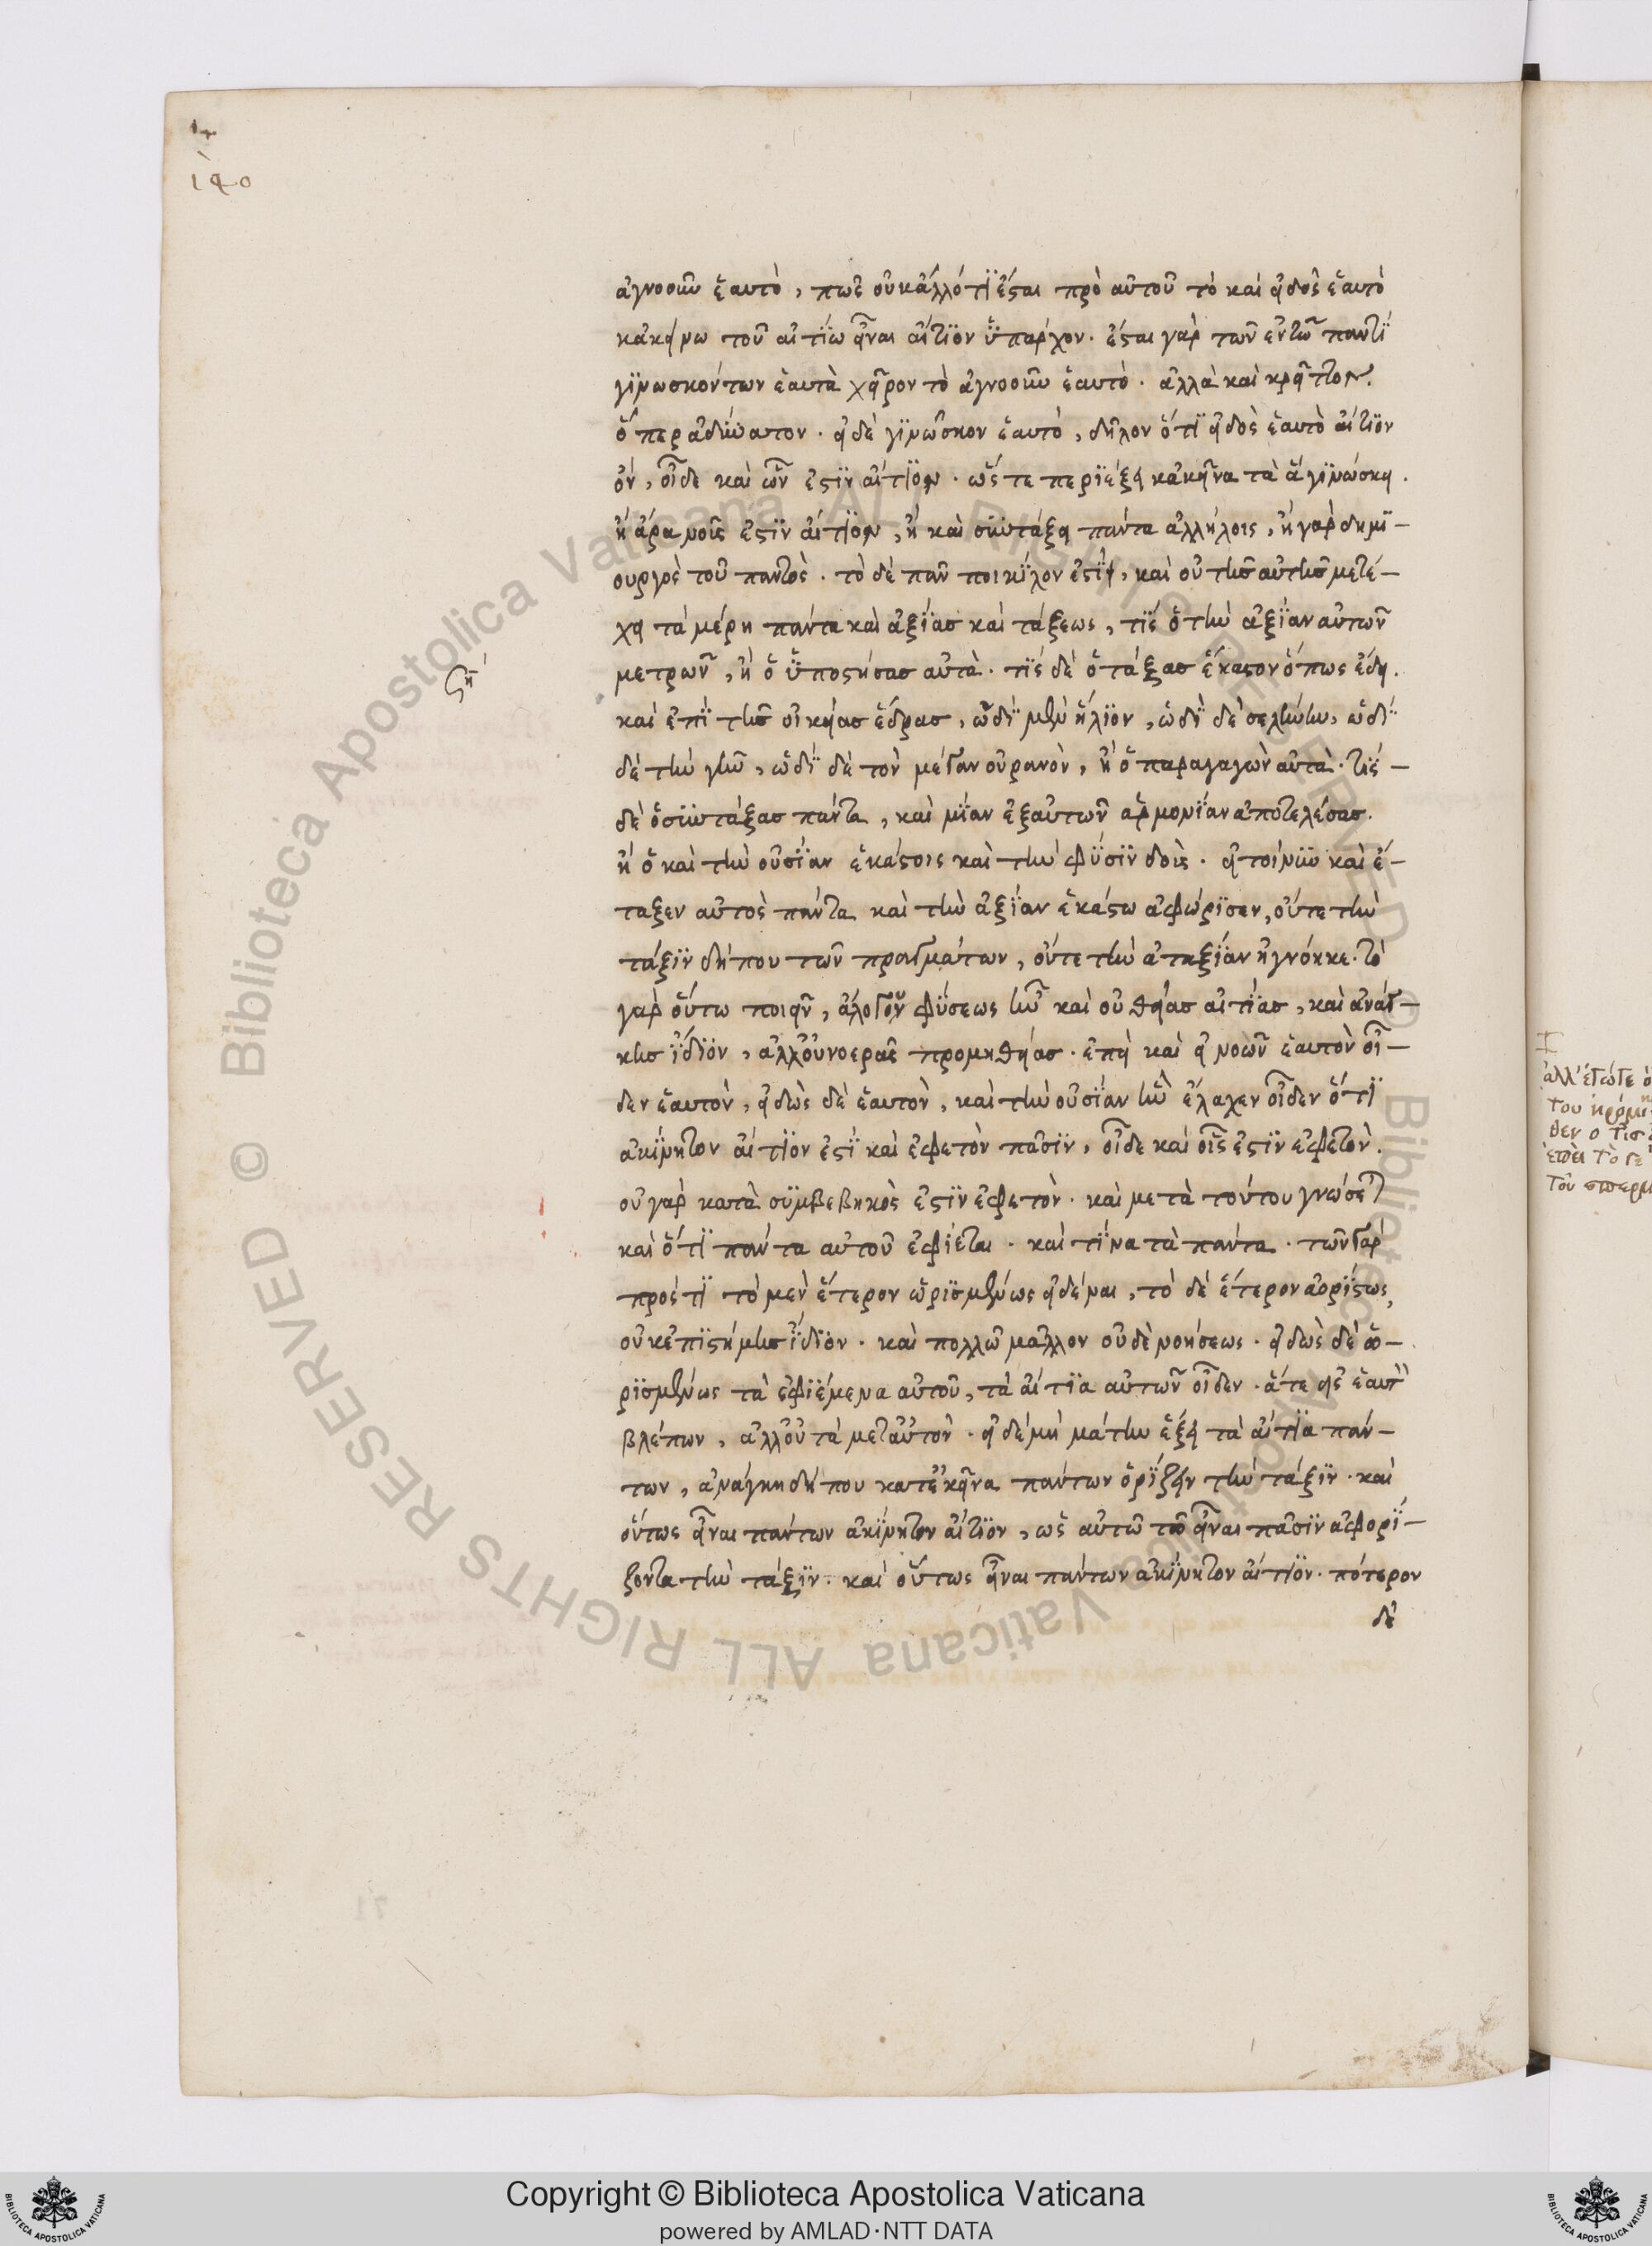 140
ἀγνοοῦν ἑαυτὸ, πῶς οὐκ ἄλλό τϊ ἔσται πρὸ αὐτοῦ τὸ καὶ εἰδὸς ἑαυτὸ
κἀκείνω τοῦ αἰτίω εἶναι αἴτϊον ὑπάρχον. ἔσται γὰρ τῶν ἐν τῶ παντὶ
γϊνωσκόντων ἑαυτὰ χεῖρον τὸ ἀγνοοῦν ἑαυτὸ. ἀλλὰ καὶ κρεῖττον.
ὅπερ ἀδύνατον. εἰ δὲ γϊνῶσκον ἑαυτὸ, δῆλον ὅτϊ εἰδὸς ἑαυτὸ αἴτϊον
ὄν, οἶδε καὶ ὧν ἐστϊν αἴτϊον. ὥστε περϊέξει κἀκεῖνα τὰ ἃ γϊνώσκει.
ἢ ἄρα νοῦς ἐστϊν αἴτϊον, ἢ καὶ συντάξει πάντα ἀλλήλοις, ἢ γὰρ δημϊ-
ουργὸς τοῦ παντὸς. τὸ δὲ πᾶν ποικίλον ἐστϊ, καὶ οὐ τῆς αὐτῆς μετέ-
χει τὰ μέρη πάντα καὶ ἀξίας καὶ τάξεως, τίς ὁ τὴν ἀξίαν αὐτῶν
μετρῶν, ἢ ὁ ὑποστήσας αὐτὰ. τίς δὲ ὁ τάξας ἕκαστον ὅπως ἔδει.
καὶ ἐπὶ τῆς οἰκείας ἕδρας, ὡδὶ μὲν ἥλϊον, ὡδὶ δὲ σελήνην, ὡδὶ
δὲ τὴν γῆν, ὡδὶ δὲ τὸν μέγαν οὐρανὸν, ἢ ὁ παραγαγὼν αὐτὰ. τίς-
δὲ ὁ συντάξας πάντα, καὶ μίαν ἐξ αὐτῶν ἁρμονίαν ἀποτελέσας.
ἢ ὁ καὶ τὴν οὐσίαν ἑκάστοις καὶ τὴν φύσϊν δοὺς. εἰ τοίνυν καὶ ἔ-
ταξεν αὐτὸς πάντα καὶ τὴν ἀξίαν ἑκάστω ἀφώρϊσεν, οὔτε τὴν
τάξϊν δήπου τῶν πραγμάτων, οὔτε τὴν ἀταξίαν ἠγνόηκε. τὸ
γὰρ οὕτω ποιεῖν, ἀλόγου φύσεως ἦν καὶ οὐ θείας αἰτίας, καὶ ἀνάγ-
κης ἴδϊον, ἀλλ' οὐ νοερᾶς προμηθείας. ἐπεὶ καὶ εἰ νοῶν ἑαυτὸν οἶ-
δεν ἑαυτὸν, εἰδὼς δὲ ἑαυτὸν, καὶ τὴν οὐσίαν ἣν ἔλαχεν οἶδεν ὅτϊ
ἀκίνητον αἴτϊον ἐστϊ καὶ ἐφετὸν πᾶσϊν, οἶδε καὶ οἷς ἐστϊν ἐφετὸν.
οὐ γὰρ κατὰ συμβεβηκὸς ἐστϊν ἐφετὸν. καὶ μετὰ τούτου γνώσεται
καὶ ὅτϊ πάντα αὐτοῦ ἐφίεται. καὶ τίνα τὰ πάντα. τῶν γὰρ
πρός τϊ τὸ μὲν ἕτερον ὡρϊσμένως εἰδέναι, τὸ δὲ ἕτερον ἀορίστως,
οὐκ ἐπϊστήμης ἴδϊον. καὶ πολλῶ μᾶλλον οὐδὲ νοήσεως. εἰδὼς δὲ ὡ-
ρϊσμένως τὰ ἐφϊέμενα αὐτοῦ, τὰ αἴτϊα αὐτῶν οἶδεν. ἅτε εἰς ἑαυτὸν
βλέπων, ἀλλ' οὐ τὰ μετ' αὐτὸν. εἰ δὲ μὴ μάτην ἕξει τὰ αἴτϊα πάν-
των, ἀνάγκη δήπου κατ' ἐκεῖνα πάντων ὁρίζειν τὴν τάξϊν. καὶ
οὕτως εἶναι πάντων ἀκίνητον αἴτϊον, ὡς αὐτῶ τῶ εἶναι πᾶσϊν ἀφορί-
ζοντα τὴν τάξϊν. καὶ οὕτως εἶναι πάντων ἀκίνητον αἴτϊον. πότερον
δὲ
Copyright © Biblioteca Apostolica Vaticana
powered by AMLAD·NTT DATA